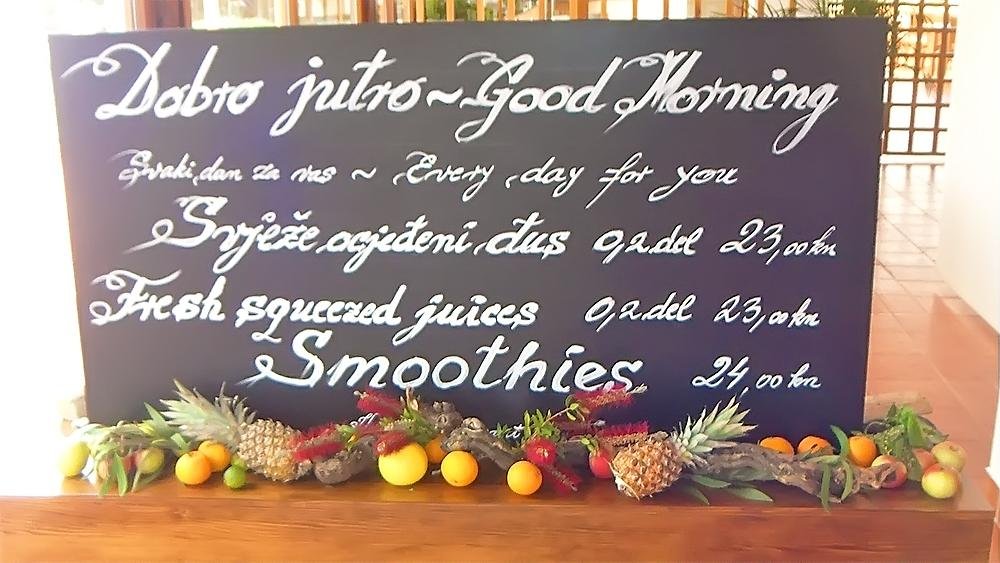 Dobro jutro ~ Good Morning
Svaki dan za vas ~ Every day for you
Svježe ocjeđeni đus 0,2 del 23,00 kn
Fresh squeezed juices 0,2 del 23,00 kn
Smoothies 24,00 kn